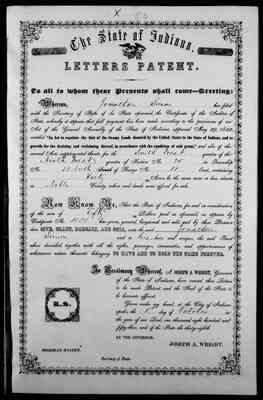 X
The State of Indiana,
LETTERS PATENT.
To all to whom these Presents shall come—Greeting:
Whereas, Jonathan has filed
with the Secretary of State of the State aforesaid, the Certificate of the Auditor of
State, whereby it appears that full payment has been made according to the provisions of an
Act of the General Assembly of the State of Indiana, approved May 1852,
entitled "An Act to regulate the Sale of the Swamp Lands donated by the United States to the State of Indiana, and to
provide for the draining and reclaiming thereof, in accordance with the condition of said grant," and also of the
several Acts supplemental thereto for the South West
quarter of Section No. in Township
No. North of Range No. 11 East, containing
Forty Acres, be the same more or less, situate
in Noble County, where said lands were offered for sale.
Now Know Ye, That the State of Indiana, for and in consideration
of the sum of Fifty Dollars paid as aforesaid, as appears by
Certificate No. has given, granted, bargained and sold and by these Presents
does GIVE, GRANT, BARGAIN, AND SELL, unto the said Jonathan
and to his heirs and assigns, the said Tract
above described, together with all the rights, privileges, immunities, and appurtenances of
whatsoever nature thereunto belonging TO HAVE AND TO HOLD THE SAME FOREVER.
In Testimony Whereof, I, JOSEPH A. WRIGHT, Governor
of the State of Indiana, have caused these Letters to
be made Patent, and the Seal of the State to
be hereunto affixed.
Given under my hand, at the City of Indianapolis,
under the day of October in
the year of our Lord one thousand eight hundred and
fifty-three and of the State the thirty-eighth.
L.S.
BY THE GOVERNOR.
JOSEPH A. WRIGHT.
Secretary of State